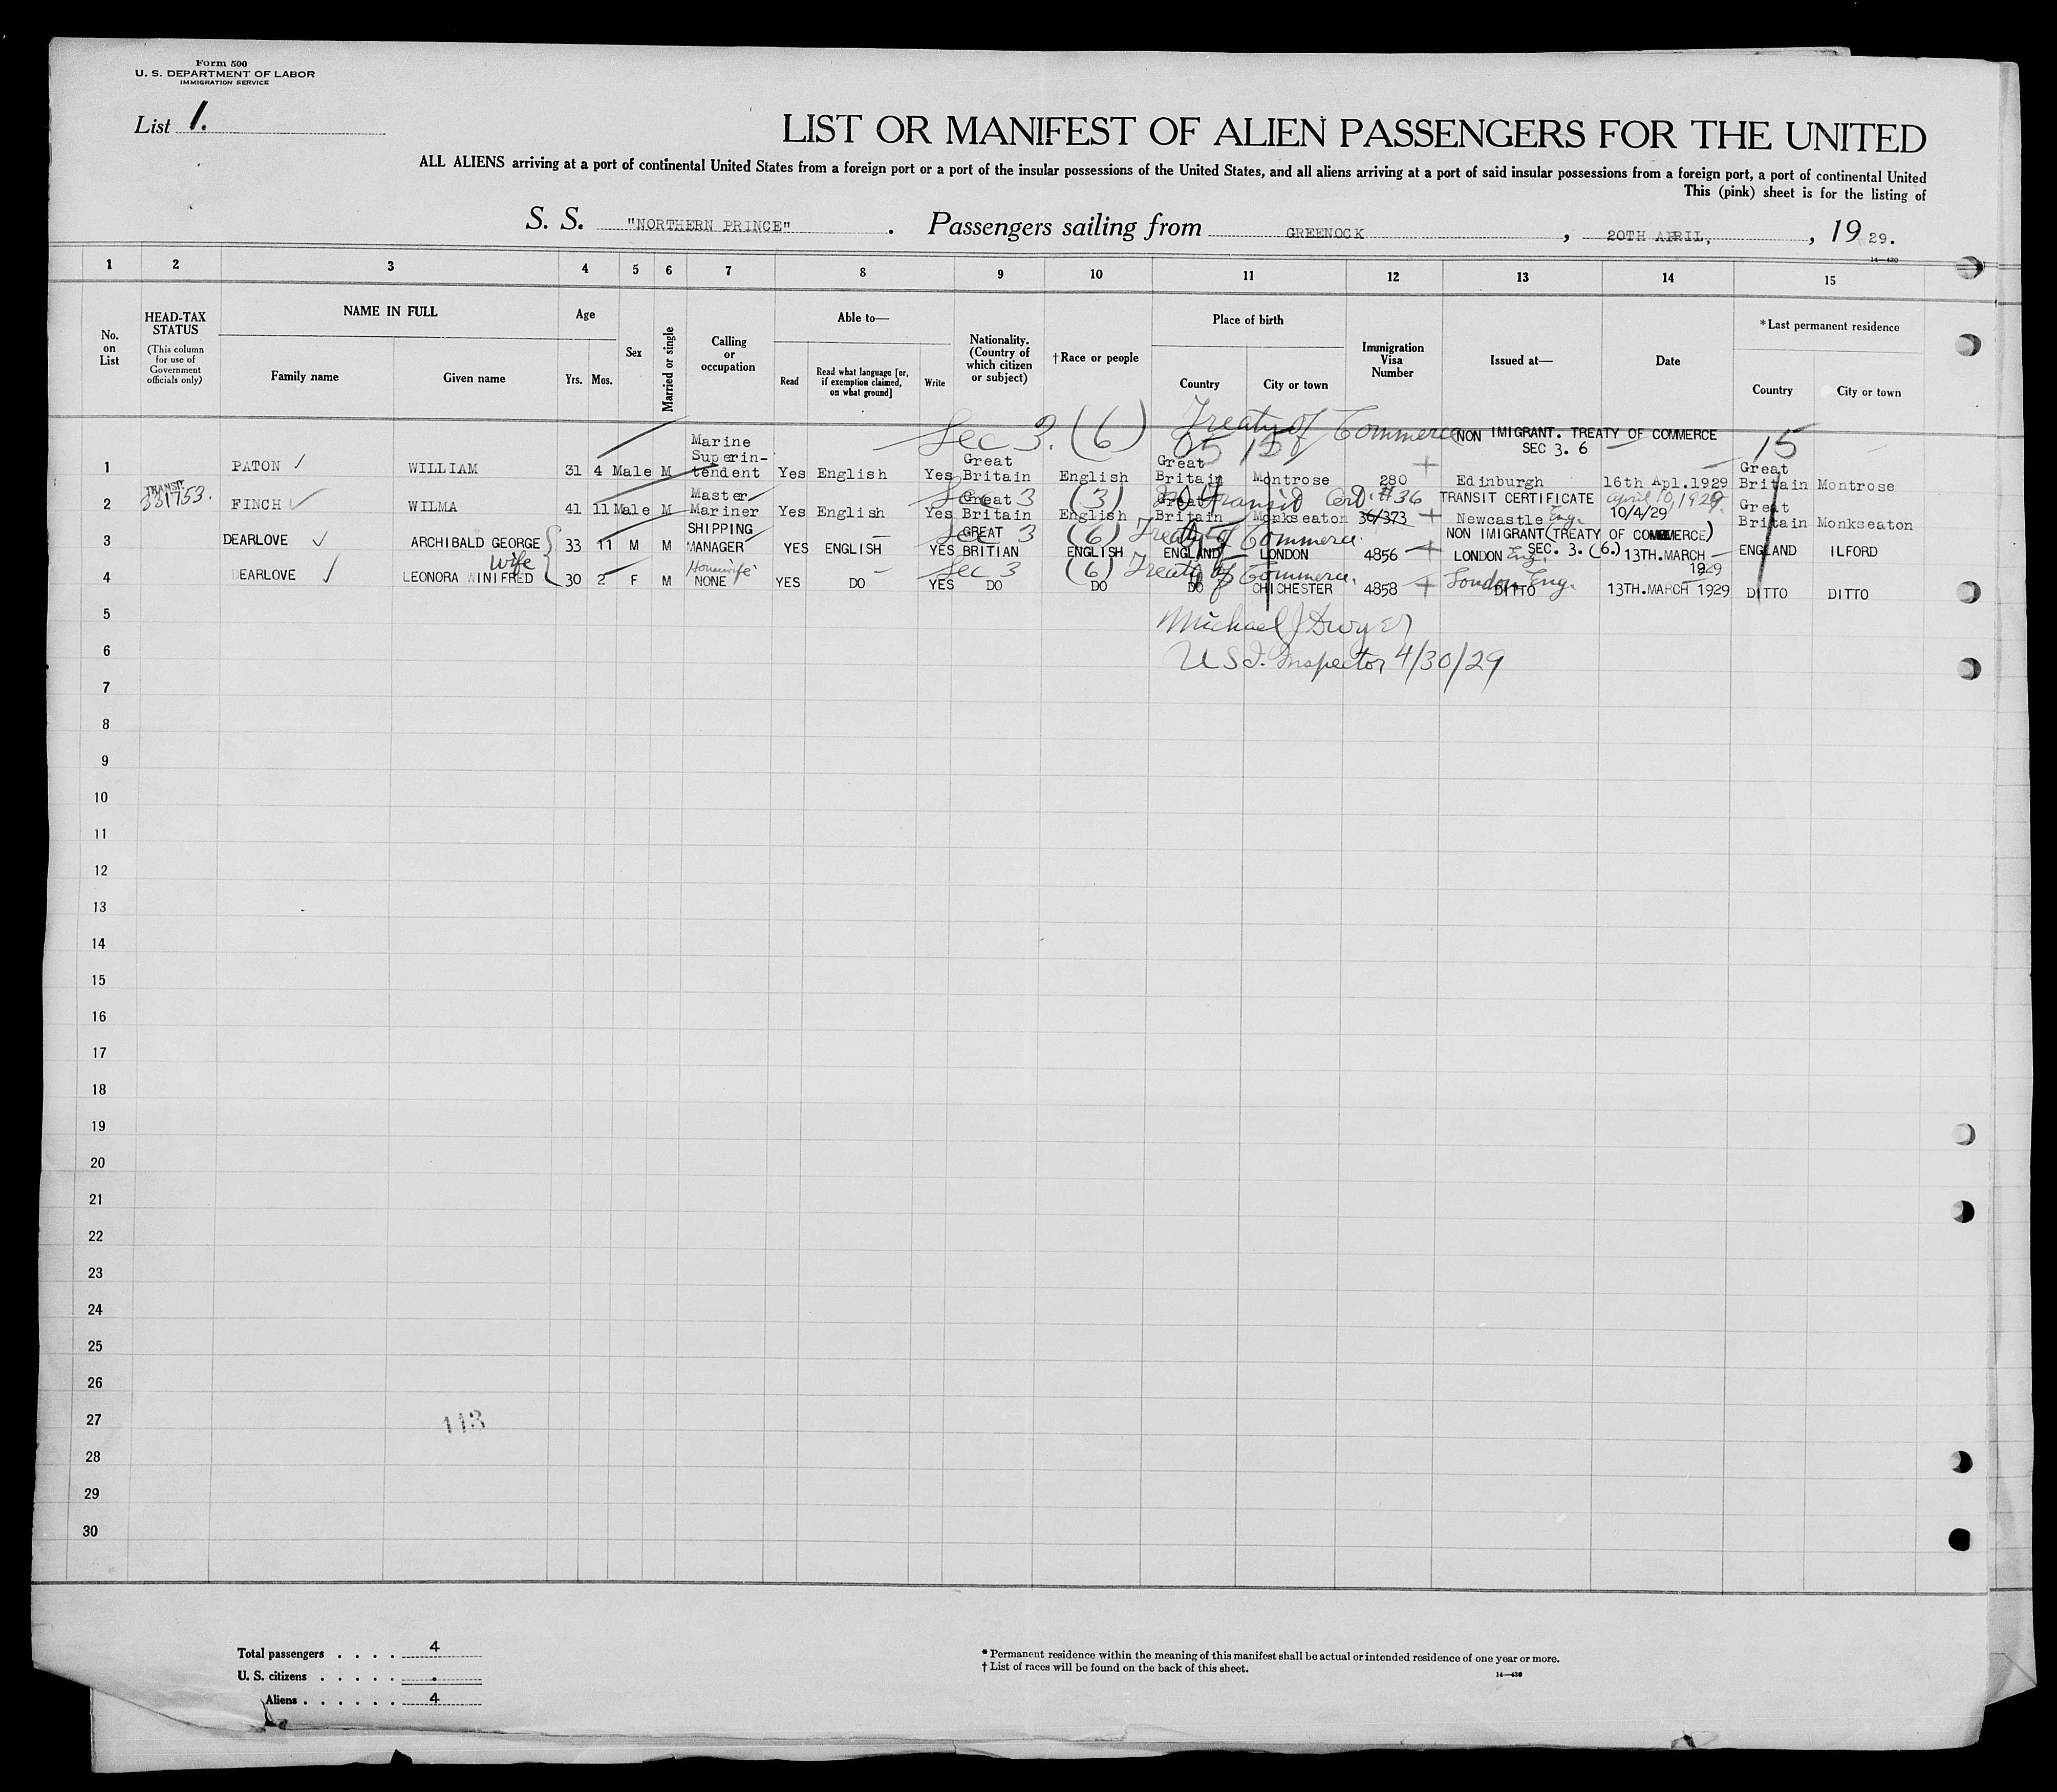 Form 500
U. S. DEPARTMENT OF LABOR
IMMIGRATION SERVICE
List 1.
LIST OR MANIFEST OF ALIEN PASSENGERS FOR THE UNITED
ALL ALIENS arriving at a port of continental United States from a foreign port or a port of the insular possessions of the United States, and all aliens arriving at a port of said insular possessions from a foreign port, a port of continental United
This (pink) sheet is for the listing of
S. S. "NORTHERN PRINCE" . Passengers sailing from GREENOCK , 20TH APRIL, , 19 29.
14—430
1 2 3 4 5 6 7 8 9 10 11 12 13 14 15
No. on List
HEAD-TAX STATUS
(This column for use of Government officials only)
NAME IN FULL
Family name Given name
Age
Yrs. Mos.
Sex
Married or single
Calling or occupation
Able to—
Read
Read what language [or, if exemption claimed, on what ground]
Write
Nationality. (Country of which citizen or subject)
†Race or people
Place of birth
Country City or town
Immigration Visa Number
Issued at—
Date
*Last permanent residence
Country City or town
Sec 3. (6) Treaty of Commerce NON IMIGRANT. TREATY OF COMMERCE
SEC 3. 6
05 15 15
1 PATON ✓ WILLIAM 31 4 Male M Marine Superin-tendent Yes English Yes Great Britain English Great Britain Montrose 280 Edinburgh 16th Apl.1929 Great Britain Montrose
Sec 3 (3) In Transit Cert. #36 TRANSIT CERTIFICATE april 10, 1929
2 TRANSIT. 331753. FINCH ✓ WILMA 41 11 Male M Master Mariner Yes English Yes Great Britain English Great Britain Monkseaton 36/373 Newcastle Eng. 10/4/29 Great Britain Monkseaton
Sec 3 (6) Treaty of Commerce. NON IMIGRANT(TREATY OF COMMERCE)
SEC. 3. (6.)
3 DEARLOVE ✓ ARCHIBALD GEORGE 33 11 M M SHIPPING MANAGER YES ENGLISH YES GREAT BRITIAN ENGLISH ENGLAND LONDON 4856 LONDON Eng. 13TH.MARCH 1929 ENGLAND ILFORD
wife
Sec 3 (6) Treaty of Commerce.
4 DEARLOVE ✓ LEONORA WINIFRED 30 2 F M Housewife NONE YES DO YES DO DO DO CHICHESTER 4858 London Eng. DITTO 13TH.MARCH 1929 DITTO DITTO
5
Michael J Dwyer
6
U S I. Inspector 4/30/29
7
8
9
10
11
12
13
14
15
16
17
18
19
20
21
22
23
24
25
26
27
113
28
29
30
Total passengers . . . . 4
U. S. citizens . . . . . .
Aliens . . . . . . 4
* Permanent residence within the meaning of this manifest shall be actual or intended residence of one year or more.
† List of races will be found on the back of this sheet.
14—430